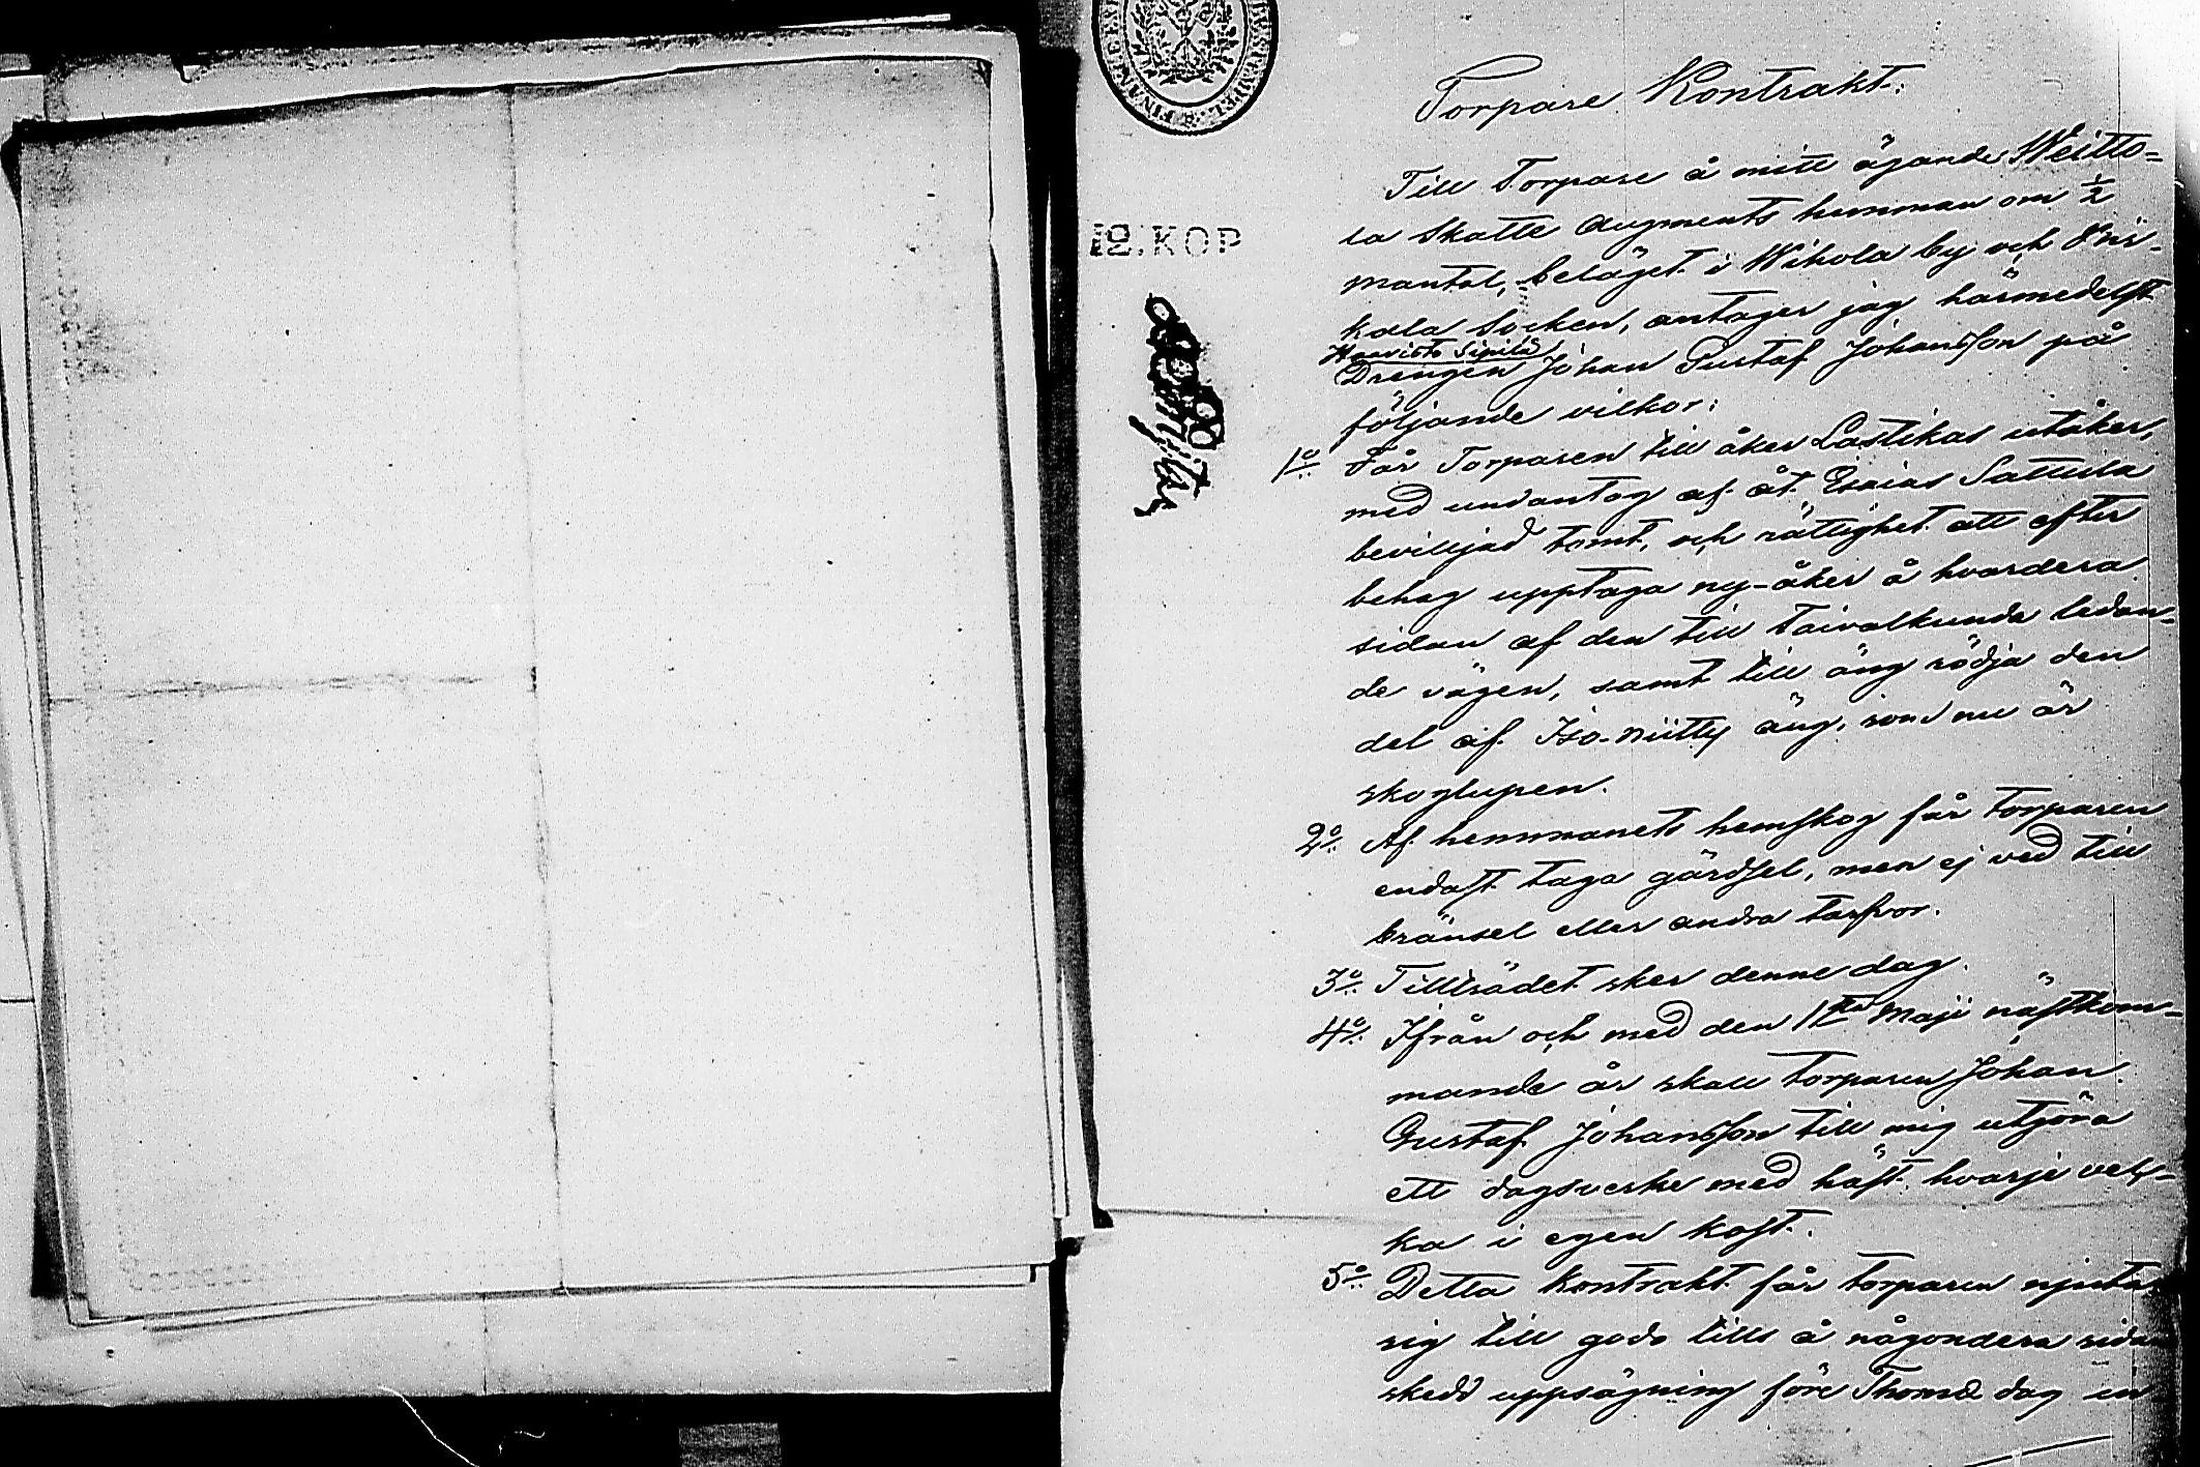 Torpare Kontrakt.
Till Torpare å mitt ägande Weitto=
la Skatte Augments hemman om ½
mantal, beläget i Wihola by och Kris-
kala Socken, antager jag härmedelst
Haavisto Sipilä
Drengen Johan Gustaf Johansson på
följande vilkor:
1o Får Torparen till åker Lastikas utåker,
med undantag af åt Esaias Sattula
beviljad tomt, och rättighet att efter
behag upptaga ny-åker å hvardera
sidan af den till Taivalkunda ledan-
de vägen, samt till äng rödja den
del af Iso-niitty äng, som nu är
skoglupen.
2o Af hemmanets hemskog får Torparen
endast taga gärdsel, men ej ved till
bränsel eller andra tarfvor.
3o Tillträdet sker denne dag.
4o Ifrån och med den 1sta Maji nästkom-
mande år skall torparen Johan
Gustaf Johansson till mig utgöra
ett dagsverke med häst hvarje vec-
ka i egen kost.
5o Detta kontrakt får torparen njuta
sig till godo tills å någondera sidan
skedd uppsägning före Thomæ dag in
12.KOP